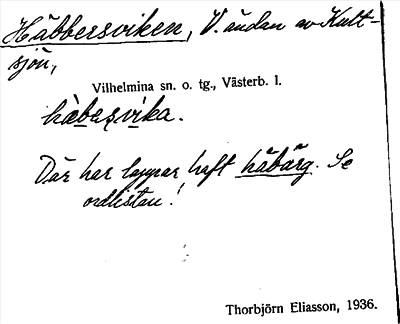 Häbbersviken, V. ändan av Kult-
sjön,
Vilhelmina sn. o. tg., Västerb. l.
hàbesvika.
Där har lappar haft häbärg. Se
ordlistan!
Thorbjörn Eliasson, 1936.